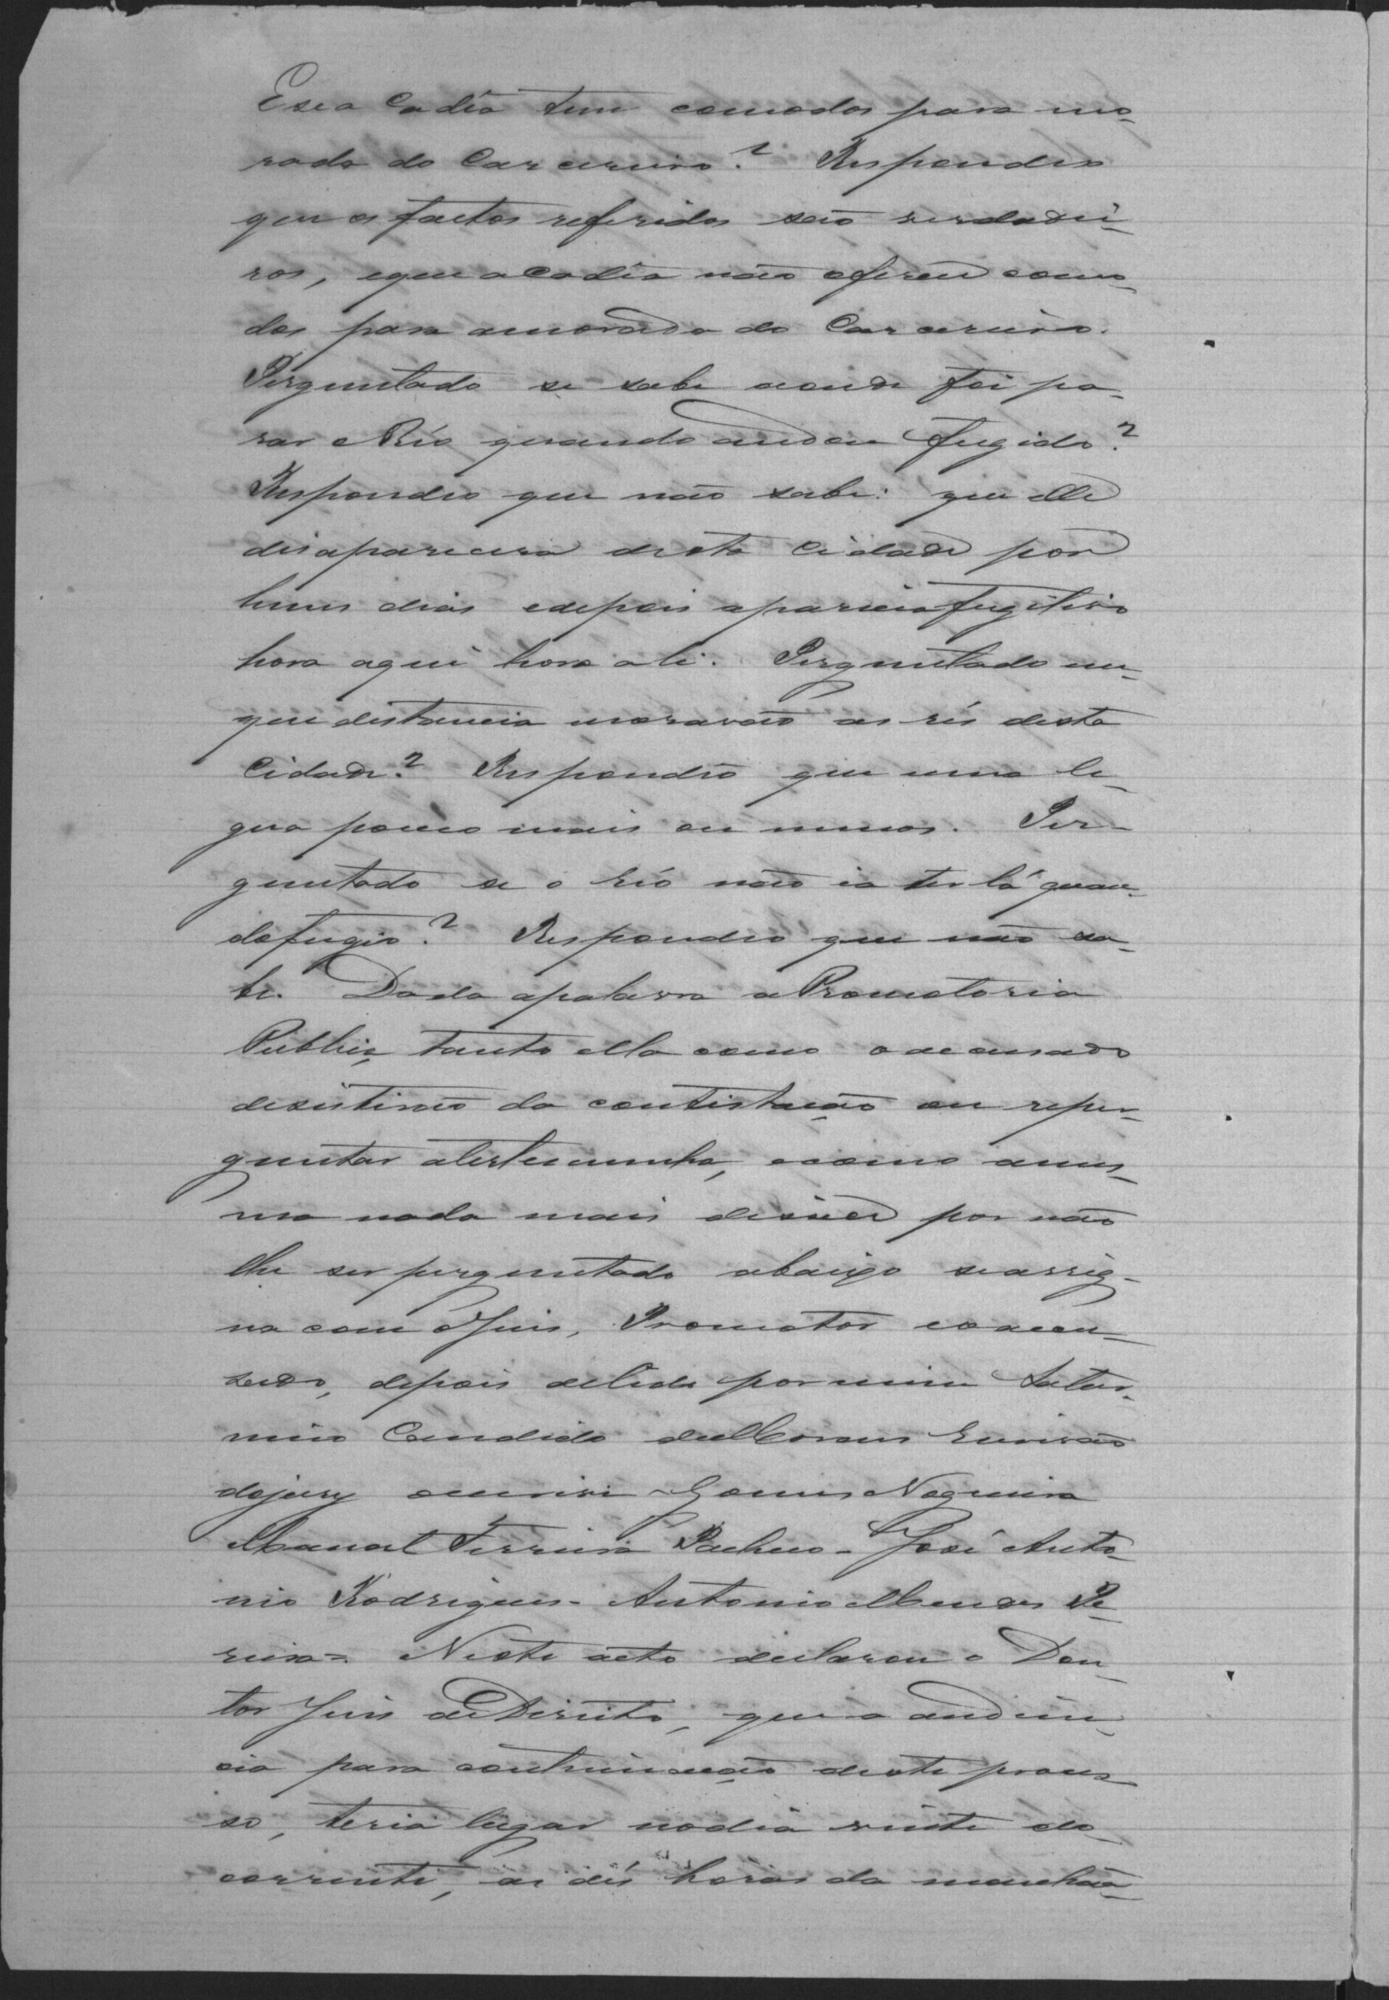 E se a Cadêa tem comodos para mo-
rada do Carcereiro? Respondeo
que os factos referidos são verdadei-
ros, e que a Cadêa não oferece como-
dos para a morada do Carcereiro.
Perguntado se sabe aonde foi pa-
rar o Réo quando andou fugido?
Respondeo que não sabe: que elle
desaparecera desta Cidade por
huns dias e depois aparecia fugitivo
hora aqui hora ali. Perguntado em
que distancia moravão as rés desta
Cidade? Respondeo que uma le-
goa pouco mais ou menos. Per-
guntado se o réo não ia ter lá quan-
do fugio? Respondeo que não sa-
be. Dada a palavra a Promotoria
Publica, tanto ella como o accusado
desistirão da contestação ou reper-
guntar a testemunha, e como a mes-
ma nada mais disse por não
lhe ser perguntado abaixo se assig-
na com o Juis, Promotor e o accu-
sado, depois de lido por mim Satur-
nino Candido de Moraes Escrivão
do jury o escrivi Gomes Nogueira
Manoel Ferreira Pacheco - José Anto-
nio Rodrigues - Antonio Mendes Pe-
reira = Neste acto declarou o Dou-
tor Juis de Direito, que a audien-
cia para continuação deste proces-
so, teria lugar no dia vinte do
corrente, as dés horas da manhãa